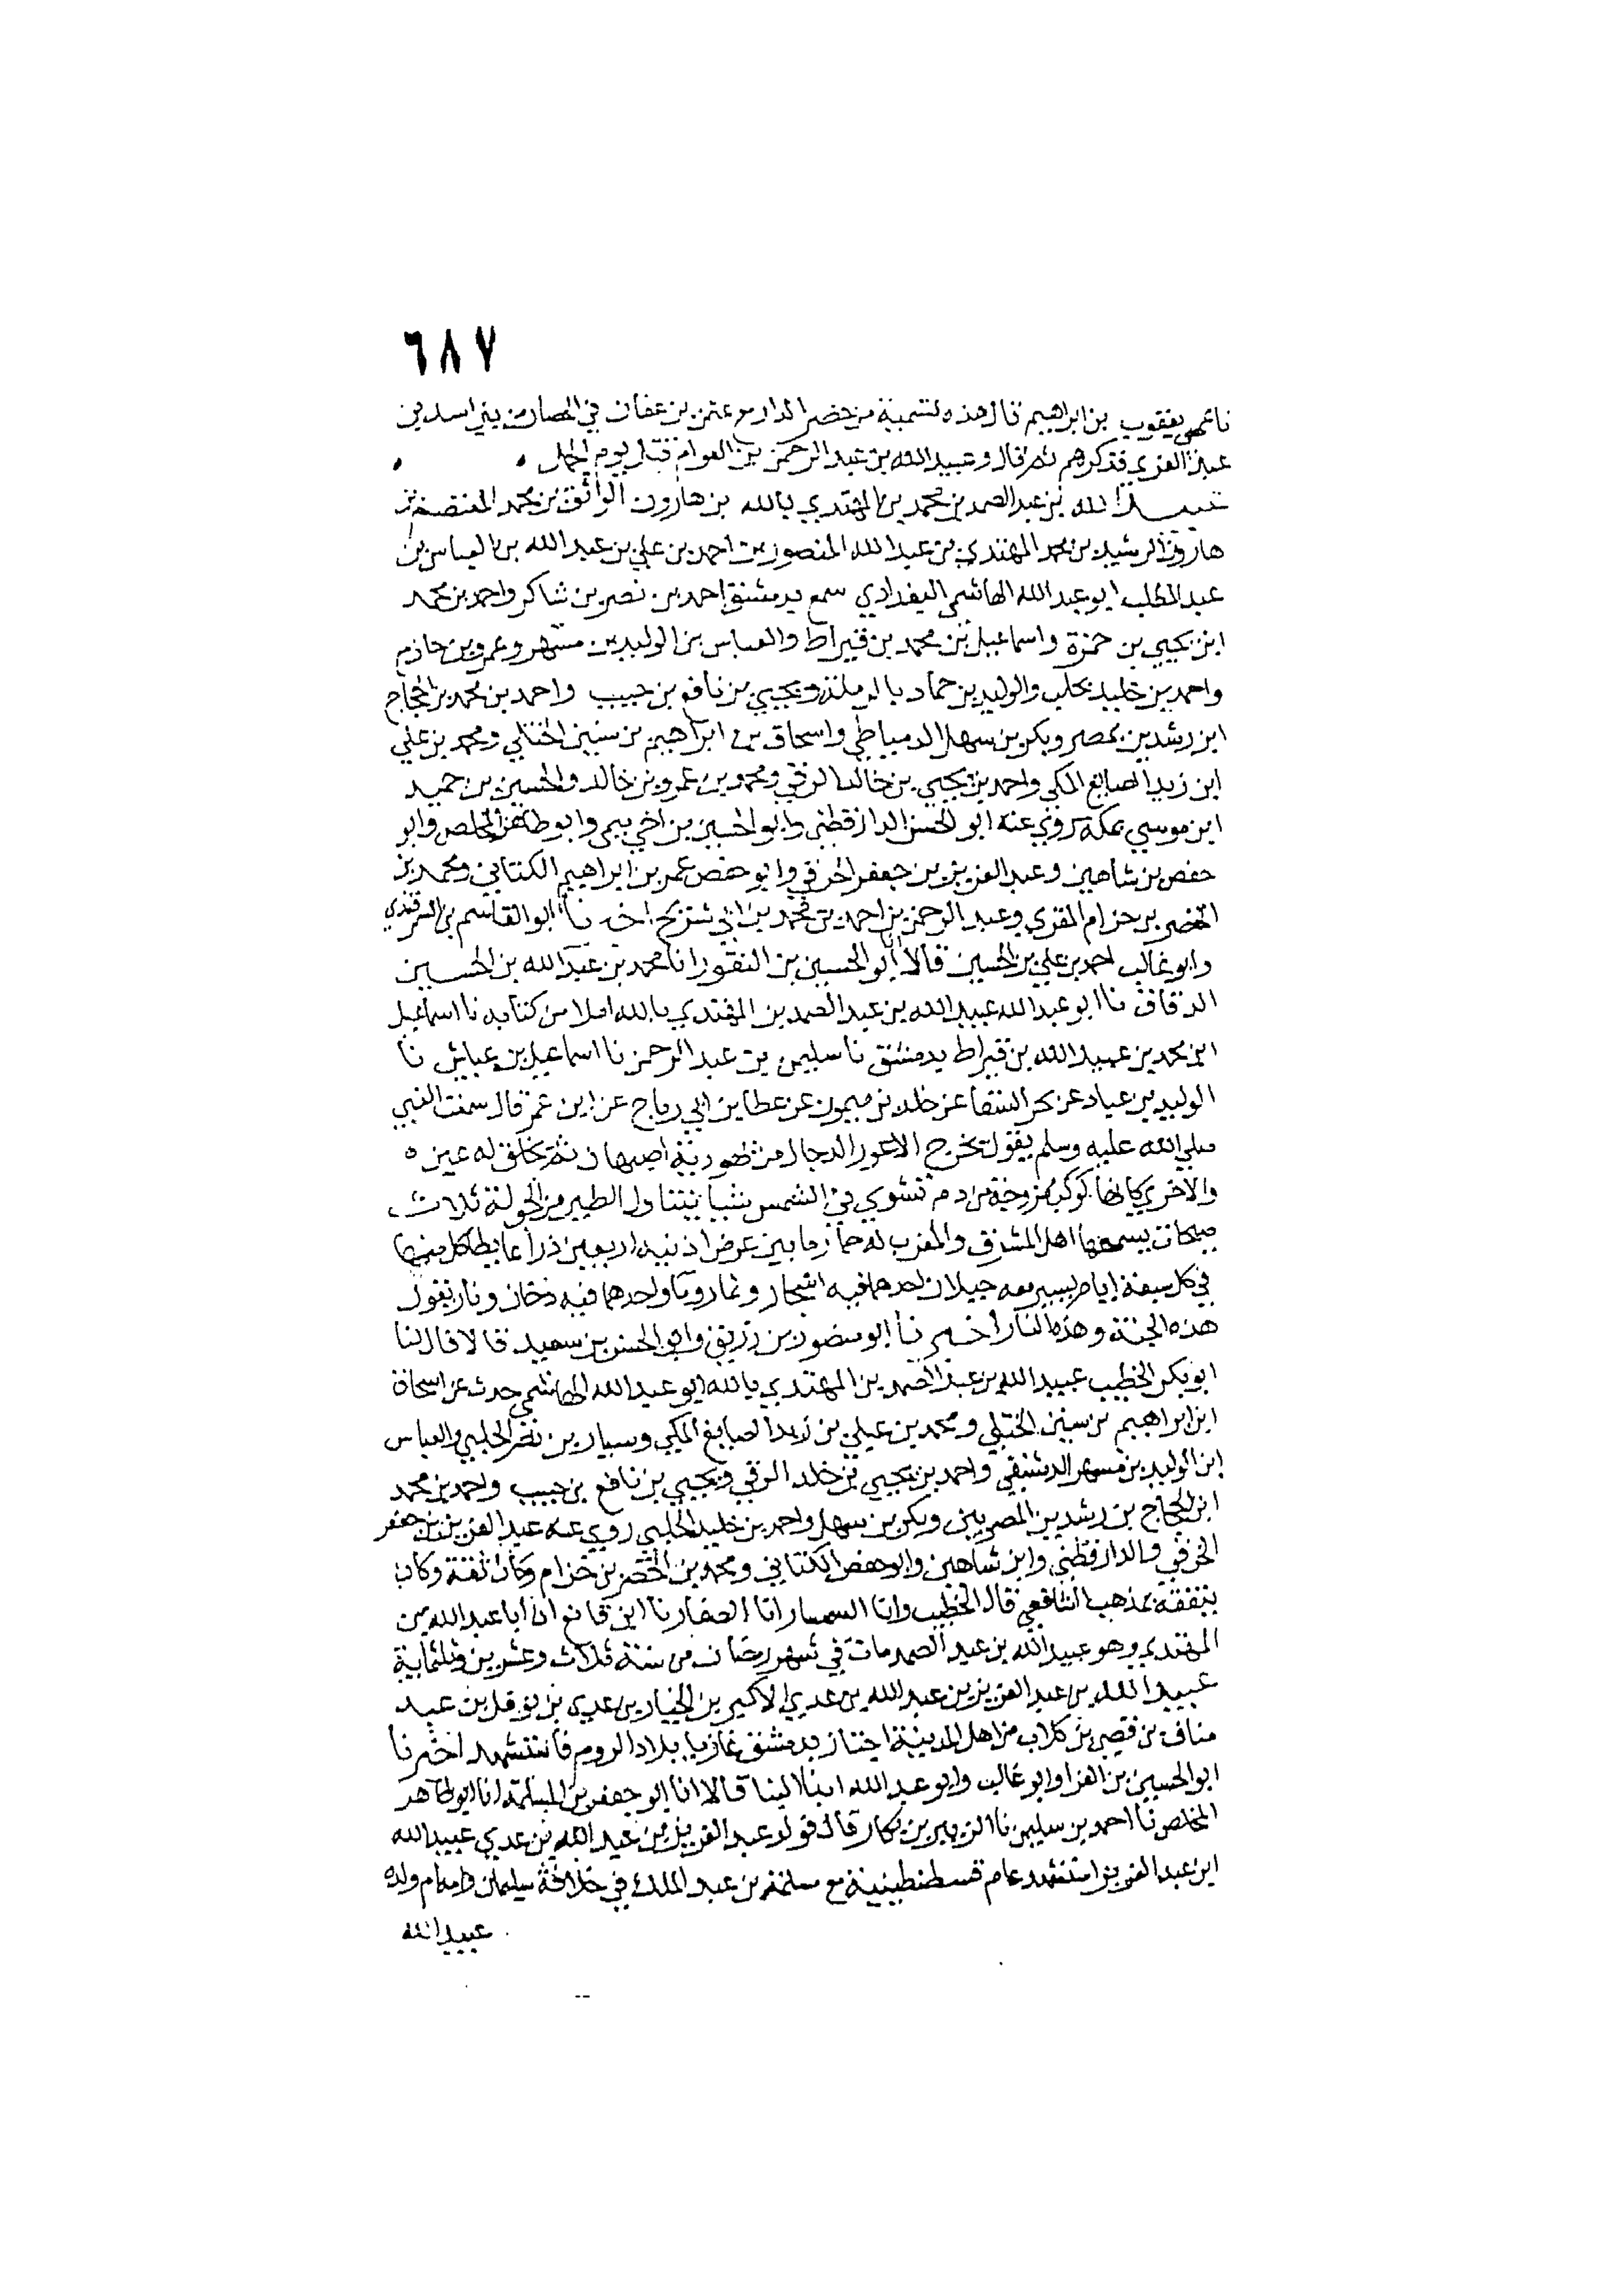 ٦٨٧
نا عمي يعقوب بن ابراهيم قال هذه تسمية من حضر الدار مع عثمن بن عفان في الحصار من بني اسد بن
عبد العزي فذكرهم ثم قال وعبيد الله بن عبد الرحمن بن العوام قتل يوم الجمل
عبيد الله بن عبد الصمد بن محمد بن المهتدي بالله بن هارون الواثق بن محمد المعتصم بن
هارون الرشيد بن محمد المهتدي بن عبد الله المنصور بن احمد بن علي بن عبد الله بن العباس بن
عبد المطلب ابو عبد الله الهاشمي البغدادي سمع بدمشق احمد بن نصر بن شاكر واحمد بن محمد
ابن يحيي بن حمزة واسماعيل بن محمد بن قيراط والعباس بن الوليد بن مسهر وعمرو بن حازم
واحمد بن خليد بحلب والوليد بن حماد بالرملة ويحيي بن نافع بن حبيب واحمد بن محمد بن الحجاج
ابن رشدين بمصر وبكر بن سهل الدمياطي واسحاق بن ابراهيم بن سنين الختلي ومحمد بن علي
ابن زيد الصايغ المكي واحمد بن يحيي بن خالد الرقي ومحمد بن عمرو بن خالد والحسين بن حميد
ابن موسي بمكة روي عنه ابو الحسن الدارقطني وابو الحسين بن اخي ميمي وابو طاهر المخلص وابو
حفص بن شاهين وعبد العزيز بن جعفر الخرقي وابو حفص عمر بن ابراهيم الكتاني ومحمد بن
الخضر بن حزام المقري وعبد الرحمن بن احمد بن محمد بن ابي شريح اخبرنا ابو القاسم بن السمرقندي
وابو غالب احمد بن علي بن الحسين قالا انا ابو الحسين بن النقور انا محمد بن عبد الله بن الحسين
الدقاق نا ابو عبد الله عبيد الله بن عبد الصمد بن المهتدي بالله املا من كتابه نا اسماعيل
ابن محمد بن عبيد الله بن قيراط بدمشق نا سليمن بن عبد الرحمن نا اسماعيل بن عياش نا
الوليد بن عباد عن بحر السقا عن خلد بن ميمون عن عطا بن ابي رباح عن ابن عمر قال سمعت النبي
صلي الله عليه وسلم يقول يخرج الاعور الدجال من يهودية اصبهان ثم يخلق له عين
والاخري كانها كوكب ممزوجة من دم تشوي في الشمس شيا يتناول الطير من الجو له ثلاث
صيحات يسمعها اهل المشرق والمغرب له حمار ما بين عرض اذنيه اربعين ذراعا يطا كل منهل
في كل سبعة ايام يسير معه جبلان احدهما فيه اشجار وثمار وما واحدهما فيه دخان ونار يقول
هذه الجنة وهذه النار اخبرنا ابو منصور بن زريق وابو الحسن بن سعيد قالا قال لنا
ابو بكر الخطيب عبيد الله بن عبد الصمد بن المهتدي بالله ابو عبد الله الهاشمي حدث عن اسحاق
ابن ابراهيم بن سنين الختلي ومحمد بن علي بن زيد الصايغ المكي وسيار بن نصر الحلبي والعباس
ابن الوليد بن مسهر الدمشقي واحمد بن يحيي بن خلد الرقي ويحيي بن نافع بن حبيب واحمد بن محمد
ابن الحجاج بن رشدين المصريين وبكر بن سهل واحمد بن خليد الحلبي روي عنه عبد العزيز بن جعفر
الخرقي والدارقطني وابن شاهين وابو حفص الكتاني ومحمد بن الخضر بن حزام وكان ثقة وكان
يتفقه بمذهب الشافعي قال الخطيب وانا السمسار انا الصفار نا ابن قانع ان ابا عبد الله بن
المهتدي وهو عبيد الله بن عبد الصمد مات في شهر رمضان من سنة ثلاث وعشرين وثلثماية
عبيد الله بن عبد العزيز بن عبد الله بن عدي الاكبر بن الخيار بن عدي بن نوفل بن عبد
مناف بن قصي بن كلاب من اهل المدينة اجتاز بدمشق غازيا بلاد الروم فاستشهد اخبرنا
ابو الحسين بن الفرا وابو غالب وابو عبد الله ابنا البنا قالا انا ابو جعفر بن المسلمة انا ابو طاهر
المخلص نا احمد بن سليمن نا الزبير بن بكار قال فولد عبد العزيز بن عبد الله بن عدي عبيد الله
ابن عبد العزيز استشهد عام قسطنطينية مع مسلمة بن عبد الملك في خلافة سليمان وامه ام ولد
عبيد الله